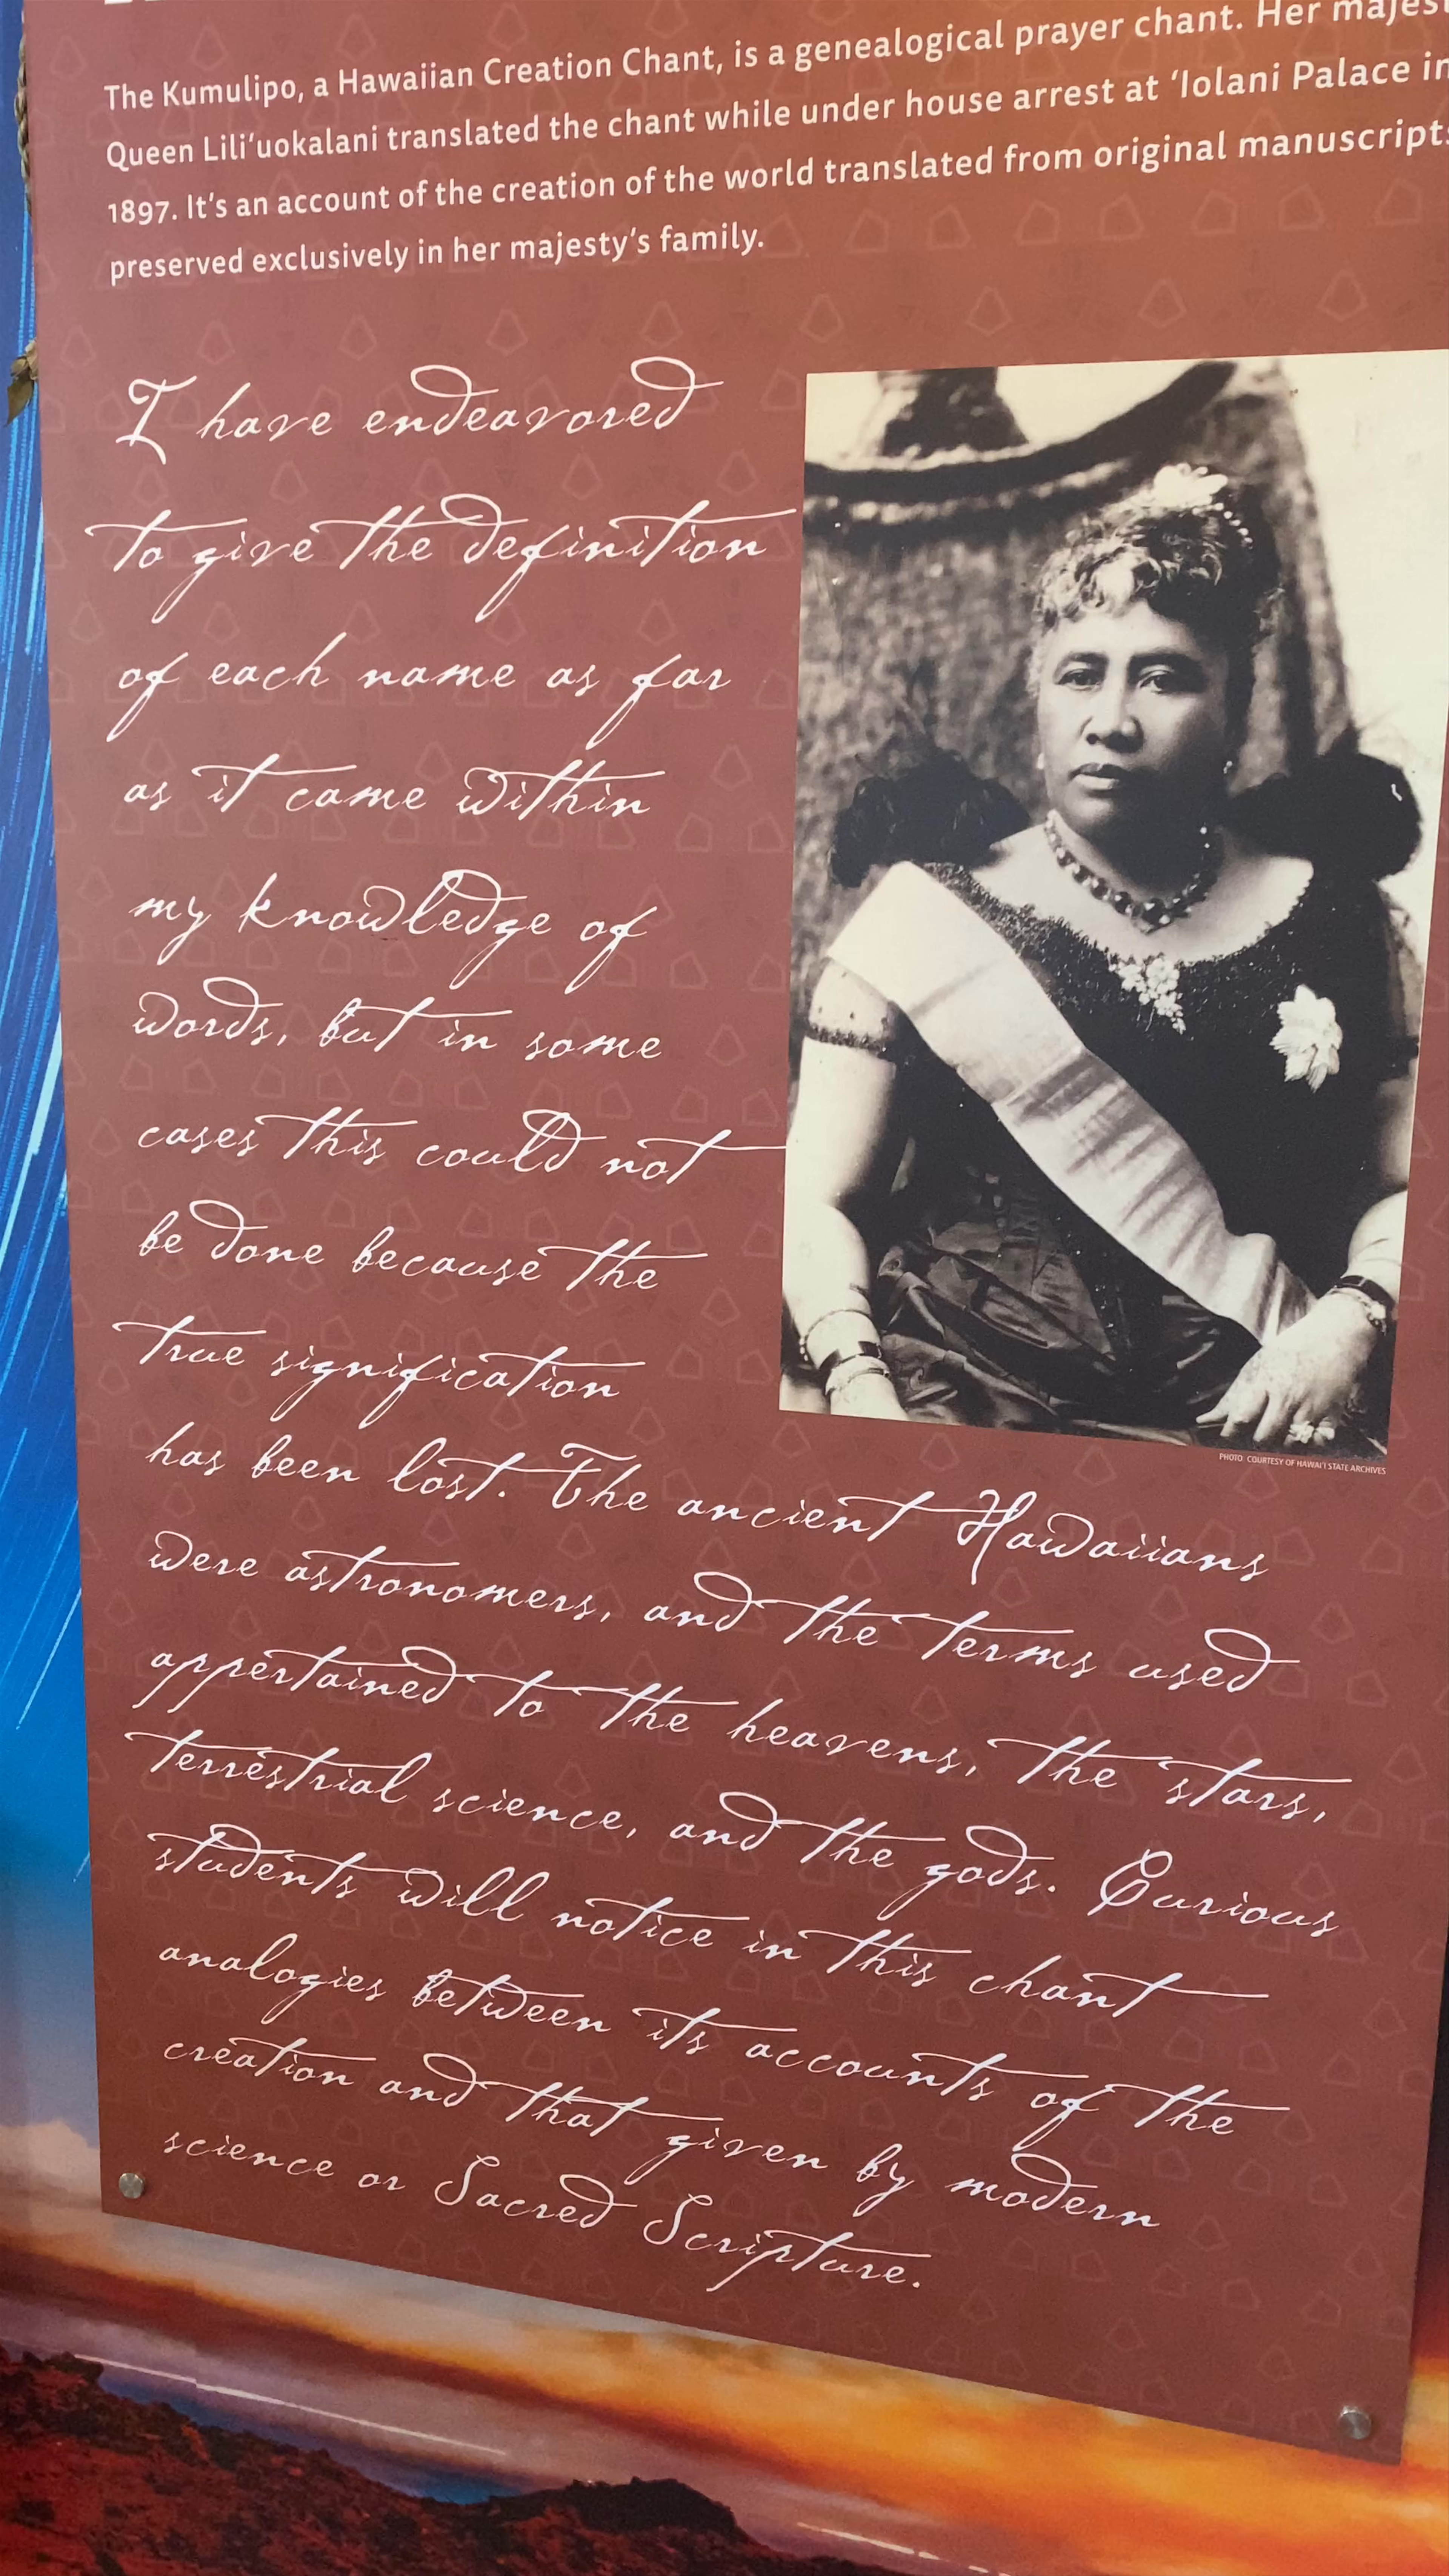 The Kumulipo, a Hawaiian Creation Chant, is a genealogical prayer chant. Her
Queen Liliʻuokalani translated the chant while under house arrest at ʻIolani Palace in
1897. It's an account of the creation of the world translated from original manuscripts
preserved exclusively in her majesty's family.
I have endeavored
to give the definition
of each name as far
as it came within
my knowledge of
words, but in some
cases this could not
be done because the
true signification
has been lost. The ancient Hawaiians
were astronomers, and the terms used
appertained to the heavens, the stars,
terrestrial science, and the gods. Curious
students will notice in this chant
analogies between its accounts of the
creation and that given by modern
science or Sacred Scripture.
PHOTO: COURTESY OF HAWAI'I STATE ARCHIVES